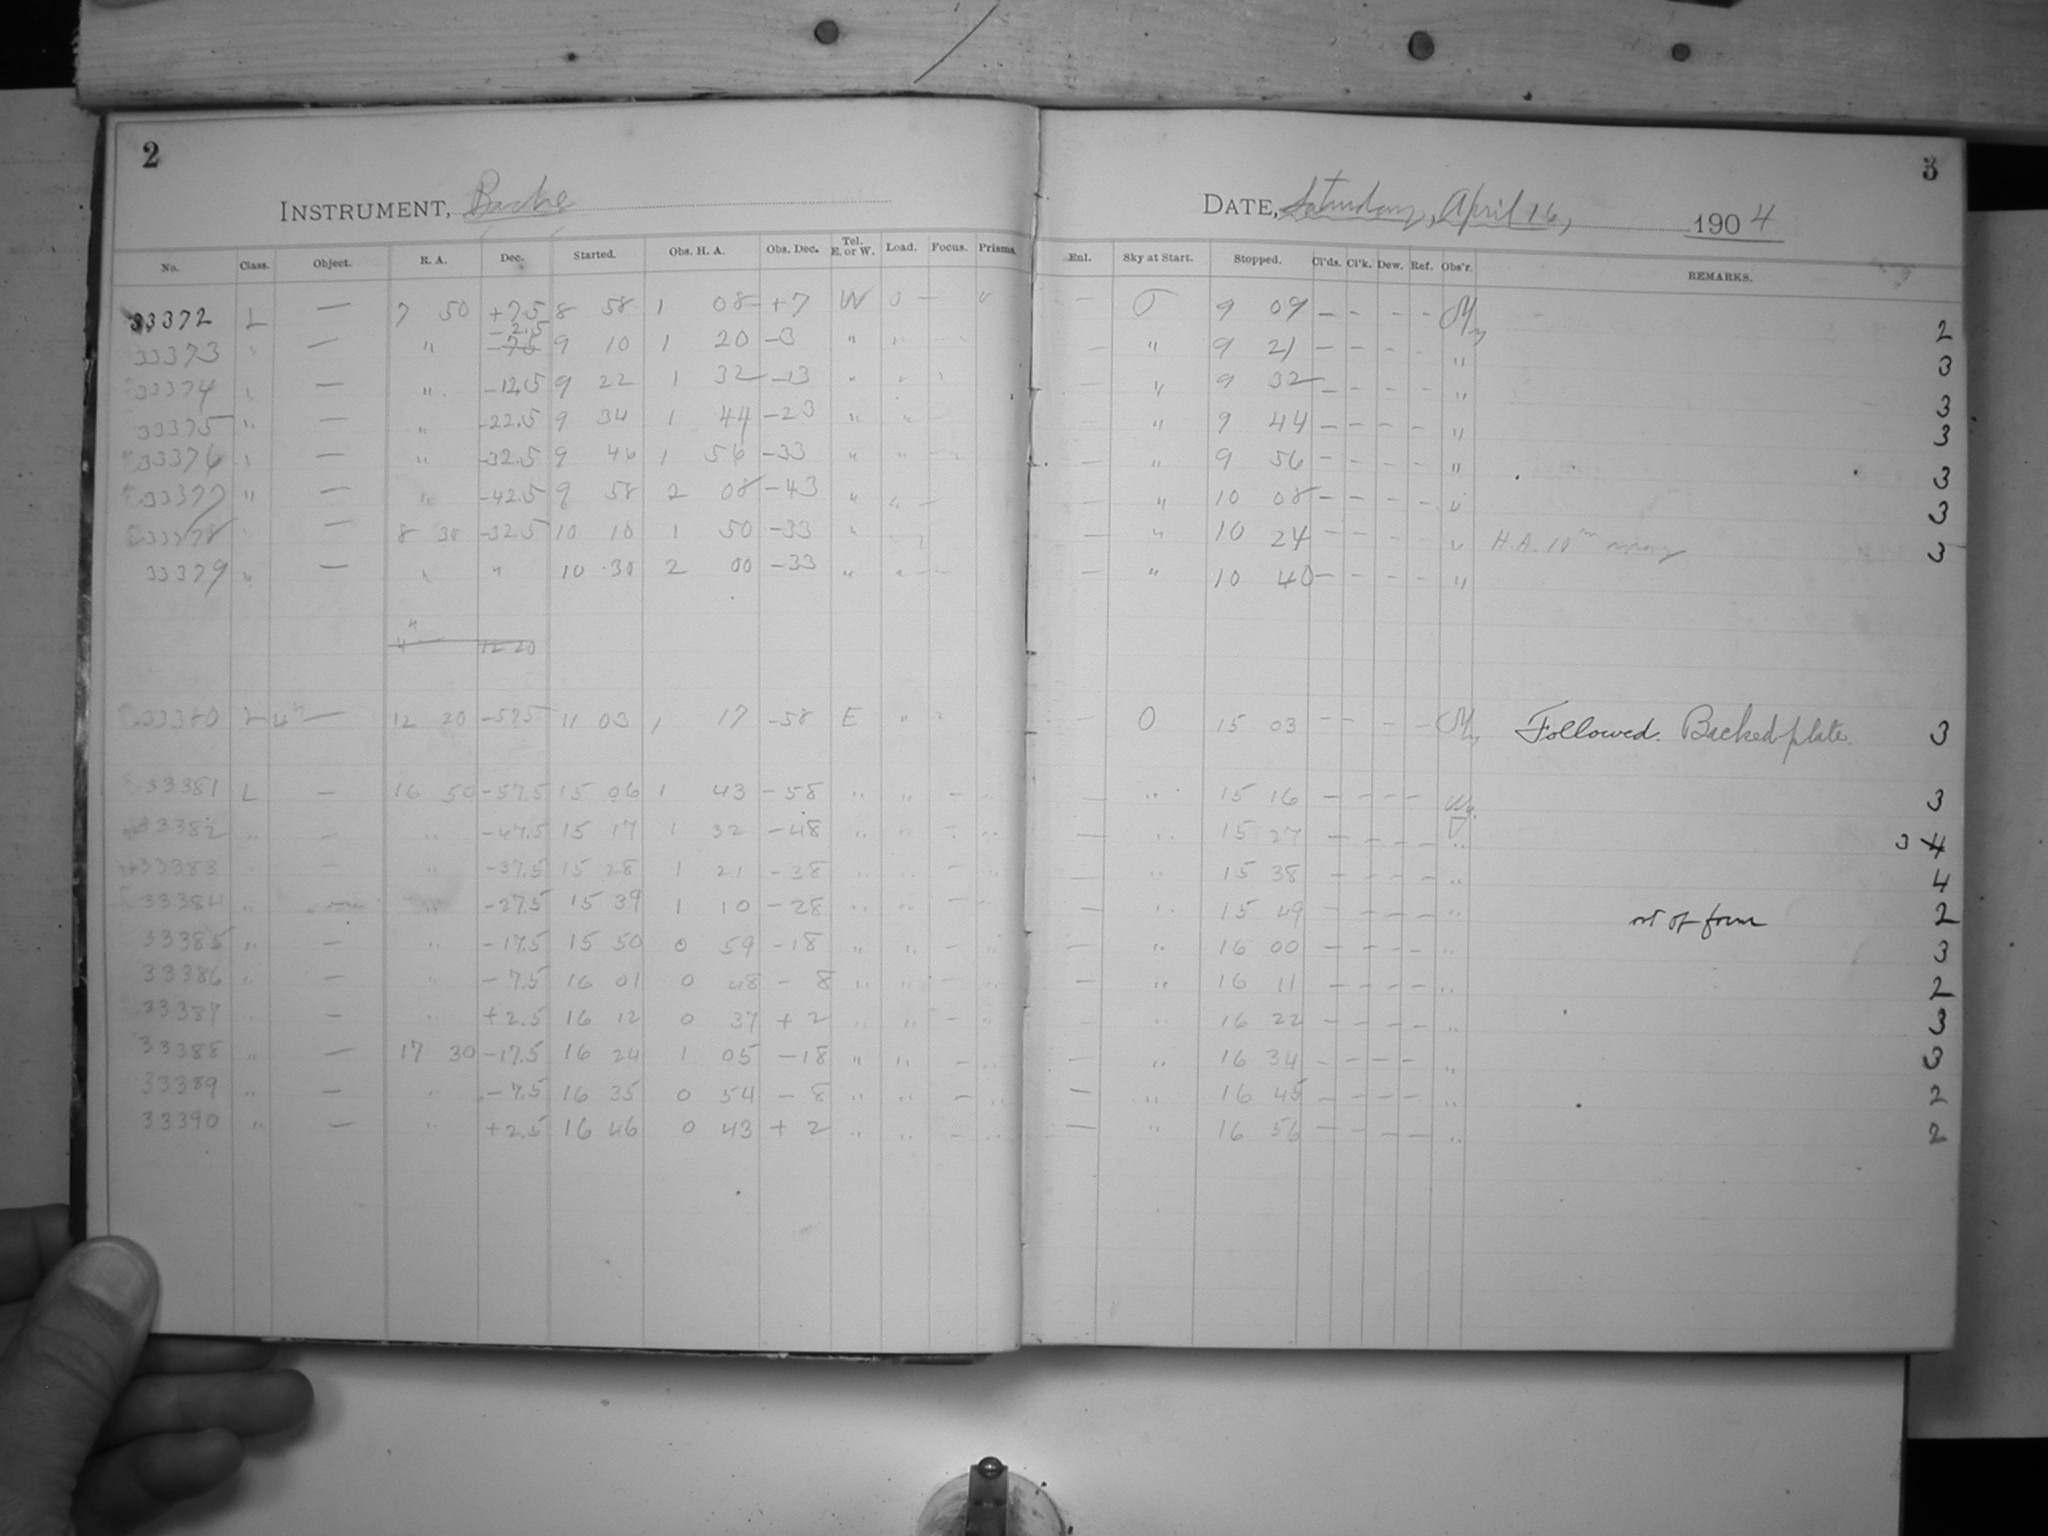 2
INSTRUMENT, Bache
No. Class. Object. R. A. Dec. Started. Obs. H. A. Obs. Dec. Tel. E. or W. Load. Focus. Prisms.
33372 L — 7 50 +7.5 8 58 1 08 +7 W 0 —
-2.5
33373 " — " -7.5 9 10 1 20 -3 "
33374 — " -12.5 9 22 1 32 -13 " "
33375 " — " -22.5 9 34 1 44 -23 " "
33376 — " -32.5 9 46 1 56 -33 " "
33377 " — " -42.5 9 58 2 08 -43 "
33378 — 8 30 -32.5 10 10 1 50 -33 "
33379 " — " " 10 30 2 00 -33 "
" 12 20
33380 L 4h — 12 20 -57.5 11 03 1 17 -58 E "
33381 L — 16 50 -57.5 15 06 1 43 -58 " " — "
33382 " — " -47.5 15 17 1 32 -48 " " — "
33383 — " -37.5 15 28 1 21 -38 " " — "
33384 " " -27.5 15 39 1 10 -28 " " — "
33385 " — " -17.5 15 50 0 59 -18 " " — "
33386 " — " -7.5 16 01 0 48 - 8 " " — "
33387 " — " +2.5 16 12 0 37 + 2 " " — "
33388 " — 17 30 -17.5 16 24 1 05 -18 " " — "
33389 " — " -7.5 16 35 0 54 - 8 " " — "
33390 " — " +2.5 16 46 0 43 + 2 " " — "
3
DATE, Saturday, April 16, 1904
Enl. Sky at Start. Stopped. Cl'ds. Cl'k. Dew. Ref. Obs'r. REMARKS.
— 9 09 — — — — 2
— " 9 21 — — — — " 3
— " 9 32 — — — — " 3
— " 9 44 — — — — " 3
— " 9 56 — — — — " 3
— " 10 08 — — — — " 3
— " 10 24 — — — — " H.A. 10m wrong 3
— " 10 40 — — — — "
— 0 15 03 — — — — Followed. Backed plate. 3
— " 15 16 — — — — 3
— " 15 27 — — — — " 3 4
— " 15 38 — — — — " 4
— " 15 49 — — — — " out of focus 2
— " 16 00 — — — — " 3
— " 16 11 — — — — " 2
— " 16 22 — — — — " 3
— " 16 34 — — — — " 3
— " 16 45 — — — — " 2
— " 16 56 — — — — " 2